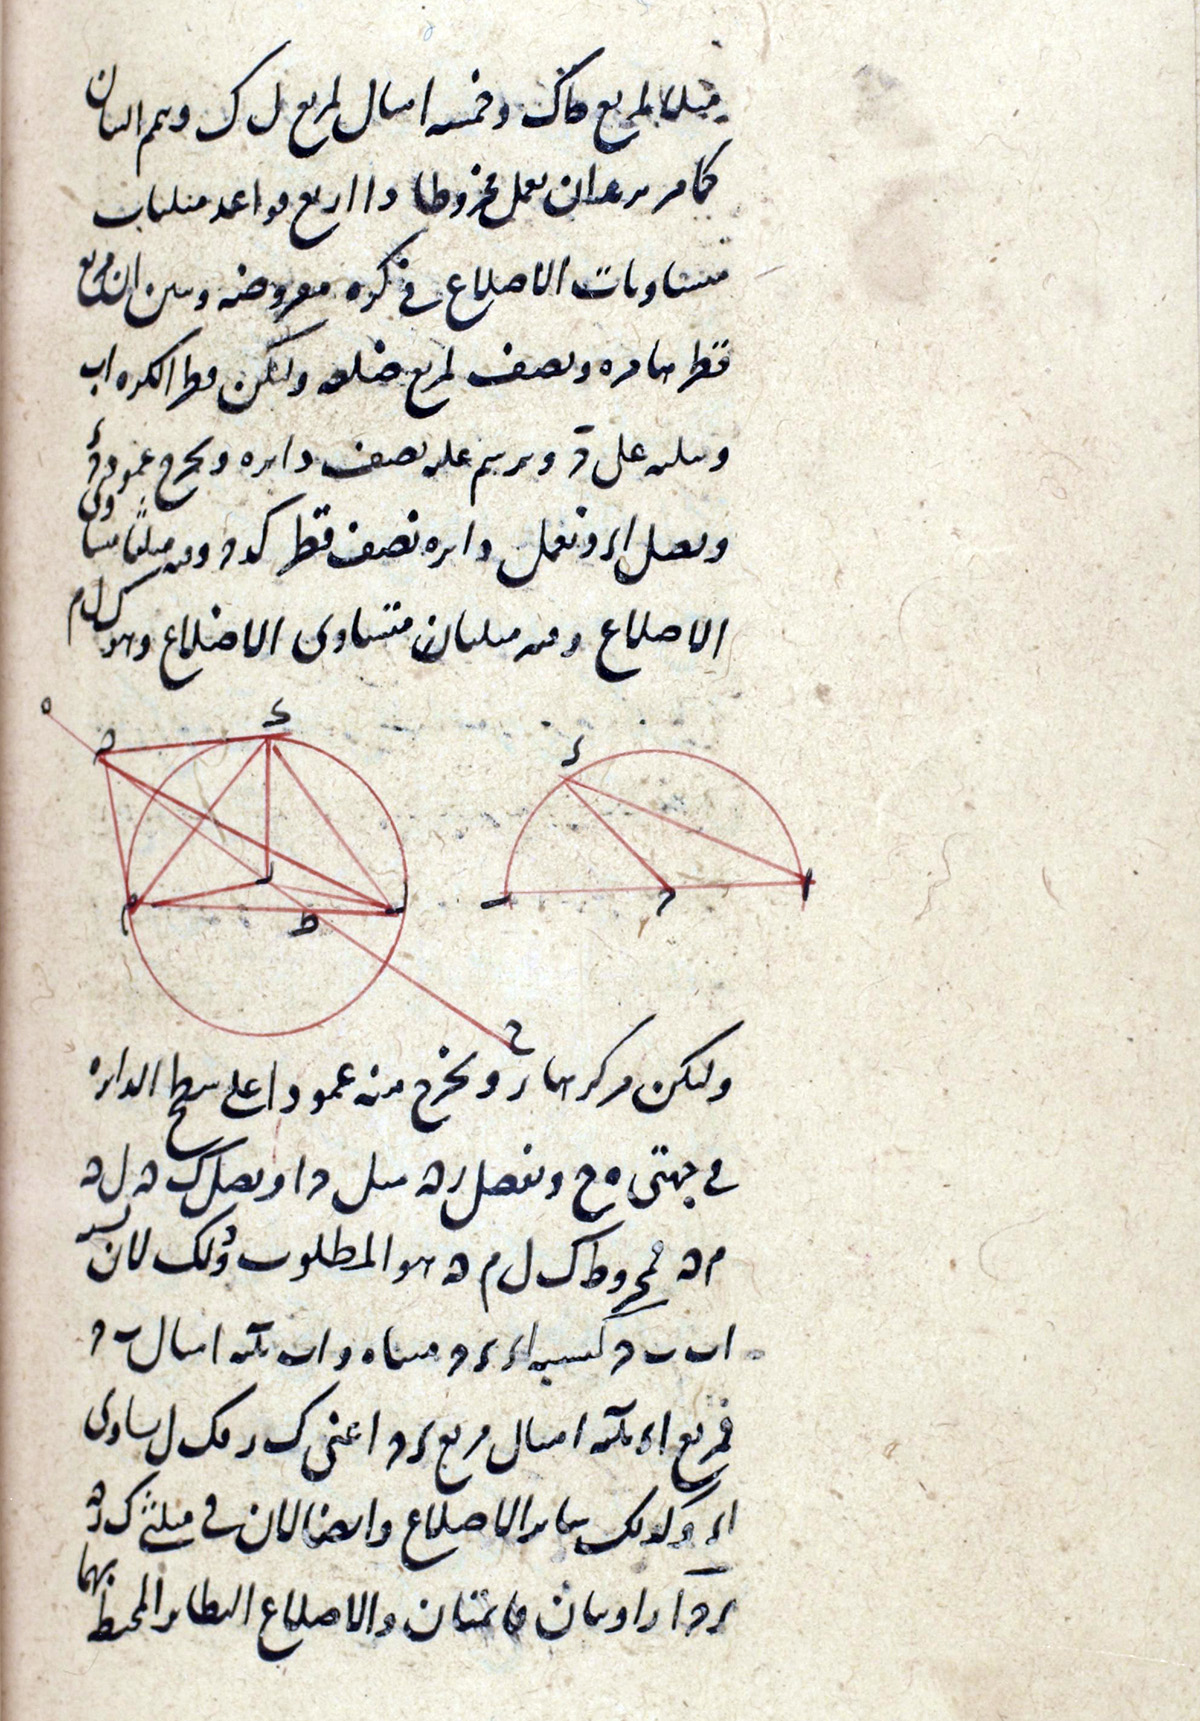 مثلا لمربع ط ك وخمسة امثال لمربع ل ك وتم البيان
كما مر نريد ان نعمل مخروطا ذا اربع قواعد مثلثات
متساويات الاضلاع فى كرة معروضة ونبين ان مربع
قطرها مرة ونصف لمربع ضلعه وليكن قطر الكرة اب
ونثلثه على ح ونرسم عليه نصف دايرة ونخرج عمود ح ء
ونصل اء ونعمل دايرة نصف قطر كء ح وفيه مثلثا متساوى
الاضلاع وفيه مثلثان متساوى الاضلاع وهو ك ل م
ه
ه
ك
ء
م
ر
ل
ط
ب
ح
ا
ح
وليكن مركزها ر ونخرج منه عمودا على سطح الدايرة
فى جهتى ه ح ونفصل ر ه مثل ح ا ونصل ك ه ل ه
م ه فمخروط ك ل م ه هو المطلوب وذلك لان نسبة
اب ب ح كنسبة اء ء ح مثناة و اب ثلثة امثال ب ح
فمربع اء ثلثة امثال مربع ء ح اعنى ك ر فك ل يساوى
اء وكذلك ساير الاضلاع وايضا لان فى مثلثى ك ر ه
ء ح ا زاويتان قائمتان والاضلاع النظاير المحيطة بهما